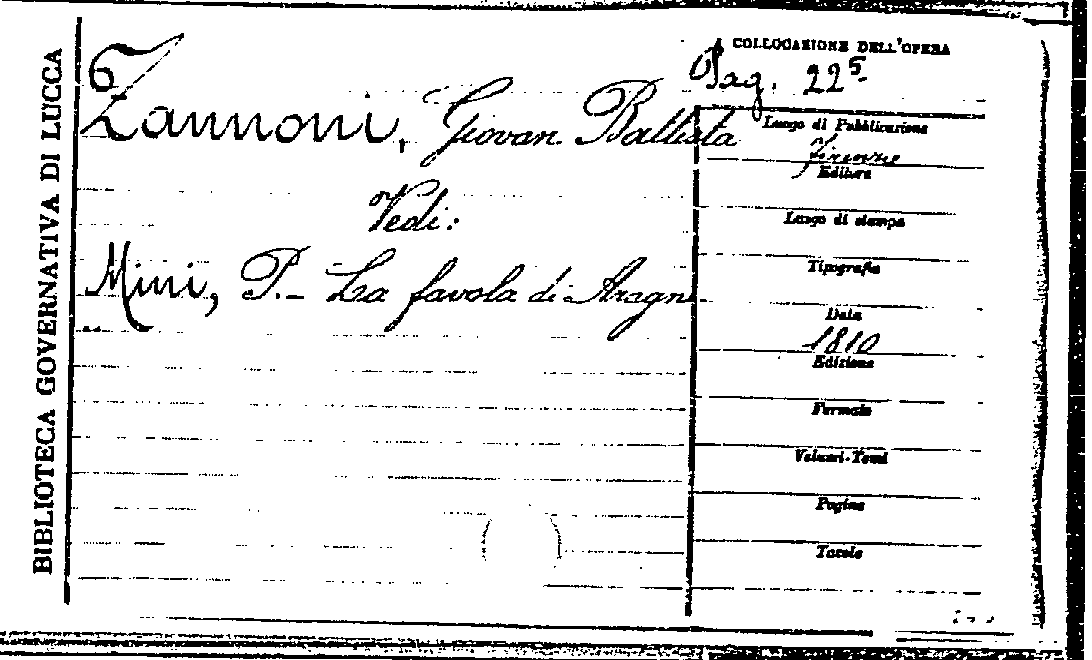 BIBLIOTECA GOVERNATIVA DI LUCCA
Zannoni, Giovan Battista
Vedi:
Mini, P. - La favola di Aragne.
COLLOCAZIONE DELL'OPERA
Pag. 225
Luogo di Pubblicazione
Firenze
Editore
Luogo di stampa
Tipografia
Data
1810
Edizione
Formato
Volumi-Tomi
Pagine
Tavole